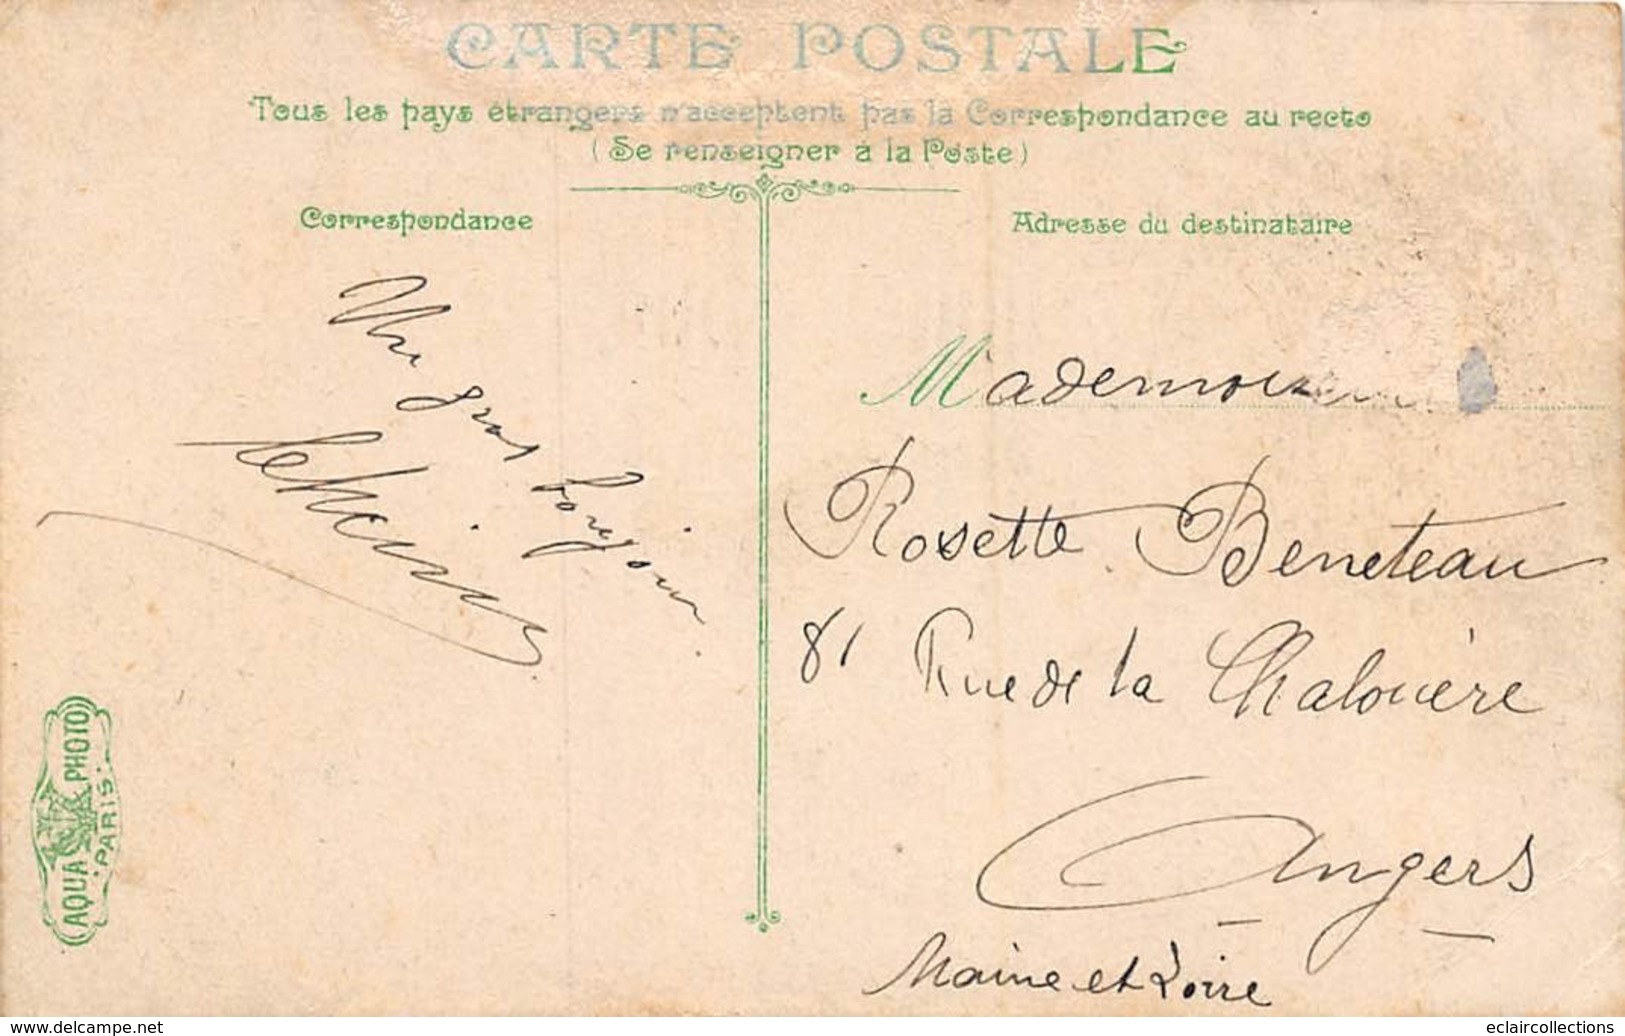 CARTE POSTALE
Tous les pays étrangers n'acceptent pas la Correspondance au recto
(Se renseigner à la Poste)
Correspondance
Adresse du destinataire
Un gros bonjour
Mademoiselle
Rosette Beneteau
81 Rue de la Chalouère
Angers
Maine et Loire
AQUA PHOTO
PARIS
www.delcampe.net
eclaircollections